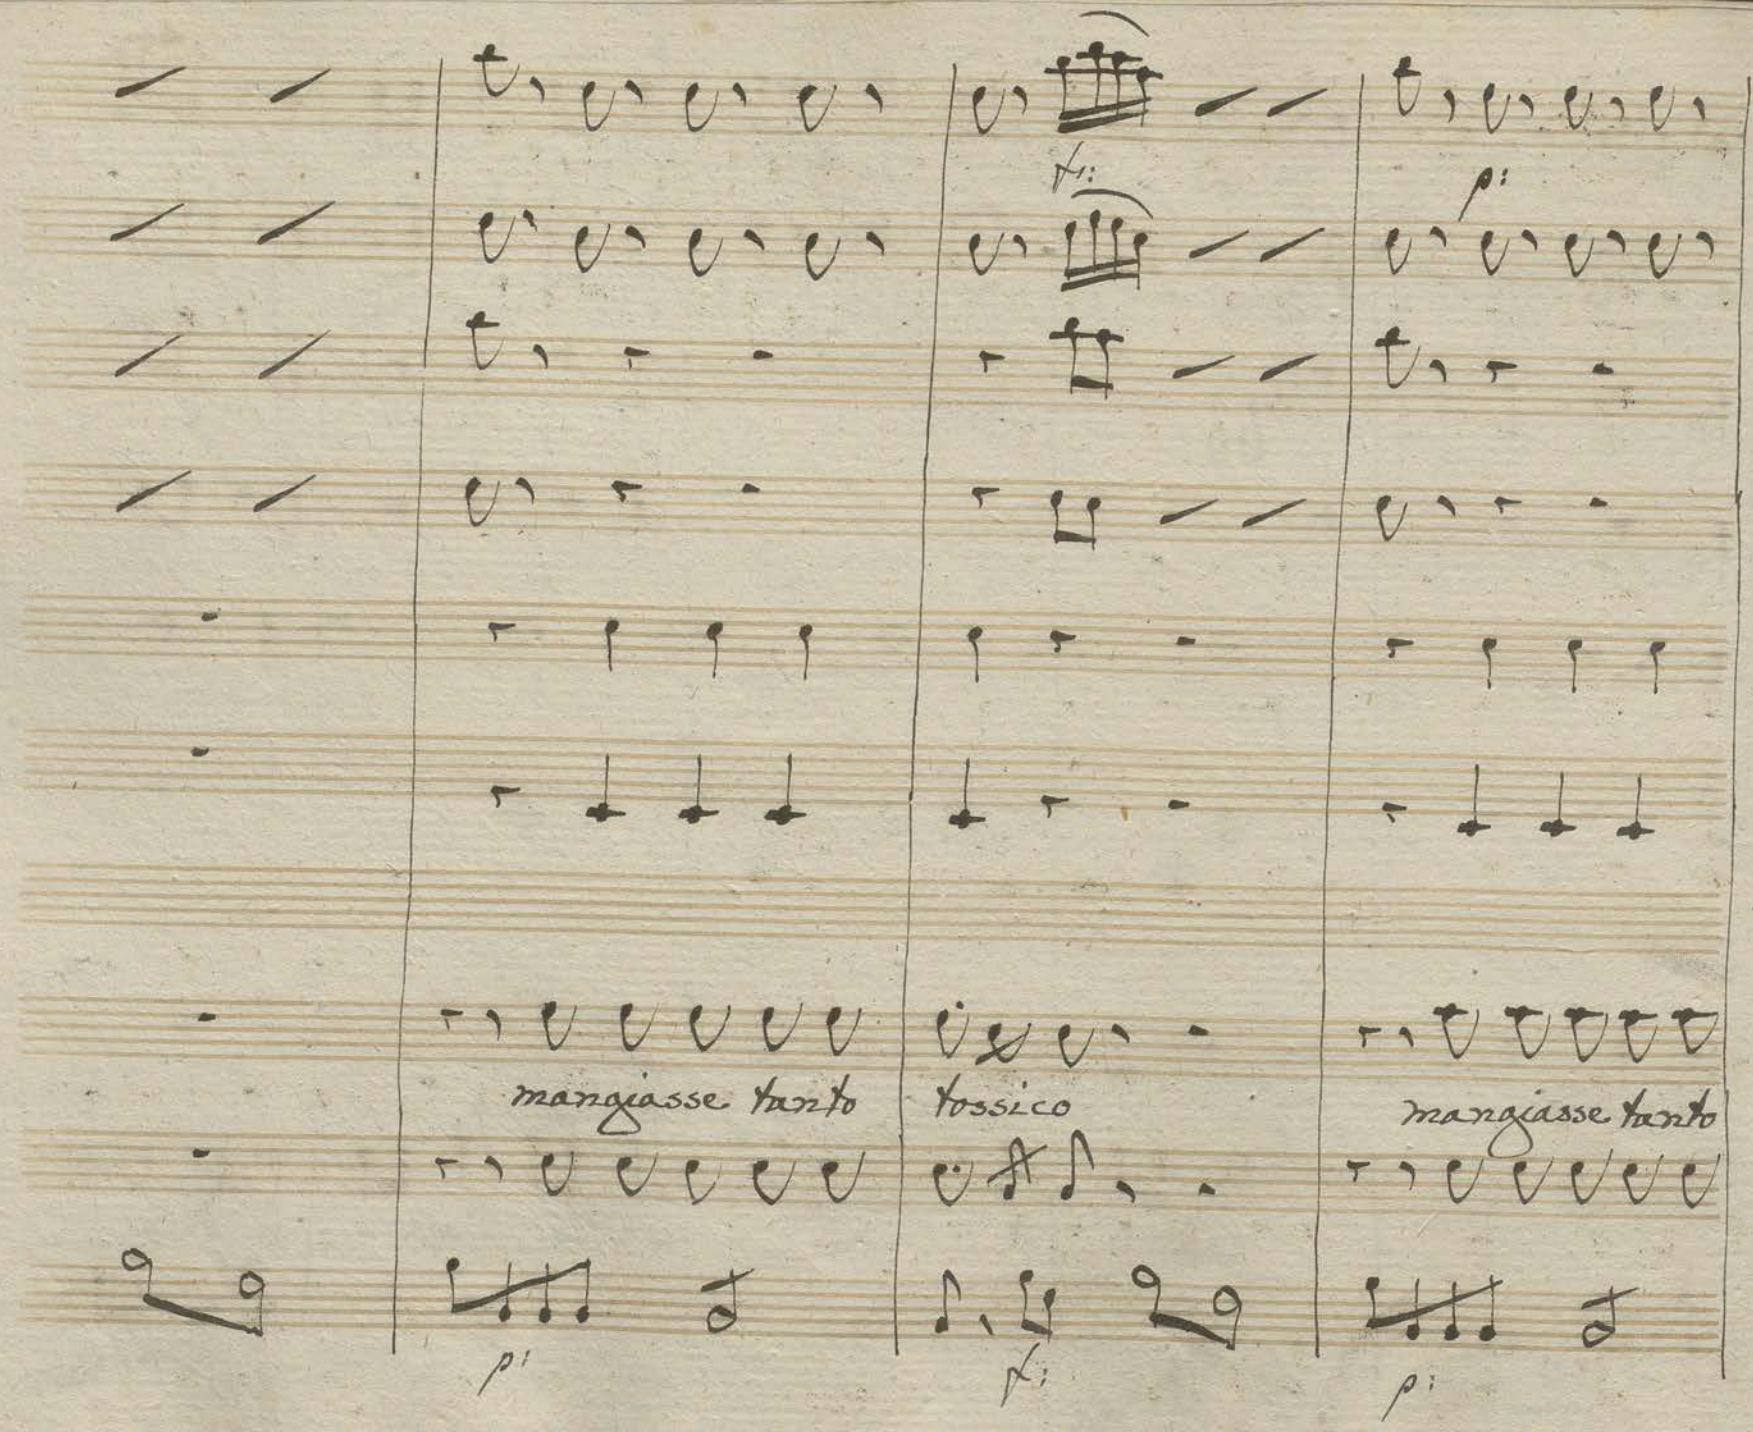 f: p:
mangiasse tanto tossico mangiasse tanto
p: f: p: